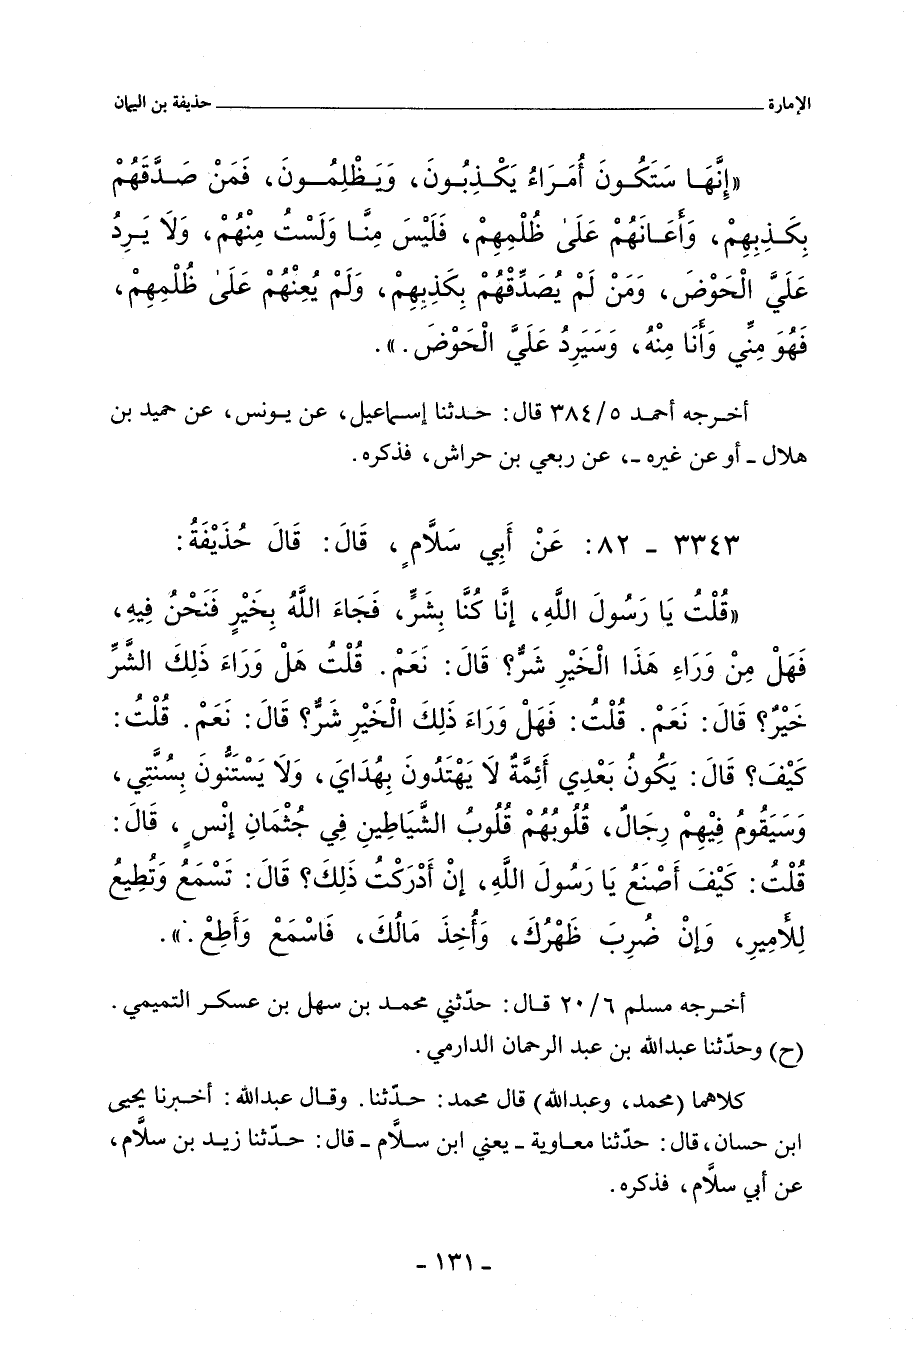 الإمارة ــــــــــــــــ حذيفة بن اليمان
«إِنَّهَا سَتَكُونَ أُمَرَاءُ يَكْذِبُونَ، وَيَظْلِمُونَ، فَمَنْ صَدَّقَهُمْ
بِكَذِبِهِمْ، وَأَعَانَهُمْ عَلَىٰ ظُلْمِهِمْ، فَلَيْسَ مِنَّا وَلَسْتُ مِنْهُمْ، وَلَا يَرِدُ
عَلَيَّ الْحَوْضَ، وَمَنْ لَمْ يُصَدِّقْهُمْ بِكَذِبِهِمْ، وَلَمْ يُعِنْهُمْ عَلَىٰ ظُلْمِهِمْ،
فَهُوَ مِنِّي وَأَنَا مِنْهُ، وَسَيَرِدُ عَلَيَّ الْحَوْضَ.».
أخرجه أحمد ٥/ ٣٨٤ قال: حدثنا إسماعيل، عن يونس، عن حميد بن
هلال ـ أو عن غيره ـ، عن ربعي بن حراش، فذكره.
٣٣٤٣ ـ ٨٢: عَنْ أَبِي سَلَّامٍ، قَالَ: قَالَ حُذَيْفَةُ:
«قُلْتُ يَا رَسُولَ اللَّهِ، إِنَّا كُنَّا بِشَرٍّ، فَجَاءَ اللَّهُ بِخَيْرٍ فَنَحْنُ فِيهِ،
فَهَلْ مِنْ وَرَاءِ هَذَا الْخَيْرِ شَرٌّ؟ قَالَ: نَعَمْ. قُلْتُ هَلْ وَرَاءَ ذَلِكَ الشَّرِّ
خَيْرٌ؟ قَالَ: نَعَمْ. قُلْتُ: فَهَلْ وَرَاءَ ذَلِكَ الْخَيْرِ شَرٌّ؟ قَالَ: نَعَمْ. قُلْتُ:
كَيْفَ؟ قَالَ: يَكُونُ بَعْدِي أَئِمَّةٌ لَا يَهْتَدُونَ بِهُدَايَ، وَلَا يَسْتَنُّونَ بِسُنَّتِي،
وَسَيَقُومُ فِيْهِمْ رِجَالٌ، قُلُوبُهُمْ قُلُوبُ الشَّيَاطِينِ فِي جُثْمَانِ إِنْسٍ، قَالَ:
قُلْتُ: كَيْفَ أَصْنَعُ يَا رَسُولَ اللَّهِ، إِنْ أَدْرَكْتُ ذَلِكَ؟ قَالَ: تَسْمَعُ وَتُطِيعُ
لِلْأَمِيرِ، وَإِنْ ضُرِبَ ظَهْرُكَ، وَأُخِذَ مَالُكَ، فَاسْمَعْ وَأَطِعْ.».
أخرجه مسلم ٦/ ٢٠ قال: حدّثني محمد بن سهل بن عسكر التميمي.
(ح) وحدّثنا عبدالله بن عبد الرحمان الدارمي.
كلاهما (محمد، وعبدالله) قال محمد: حدّثنا. وقال عبدالله: أخبرنا يحيى
ابن حسان، قال: حدّثنا معاوية ـ يعني ابن سلَّام ـ قال: حدّثنا زيد بن سلَّام،
عن أبي سلَّام، فذكره.
ـ ١٣١ ـ